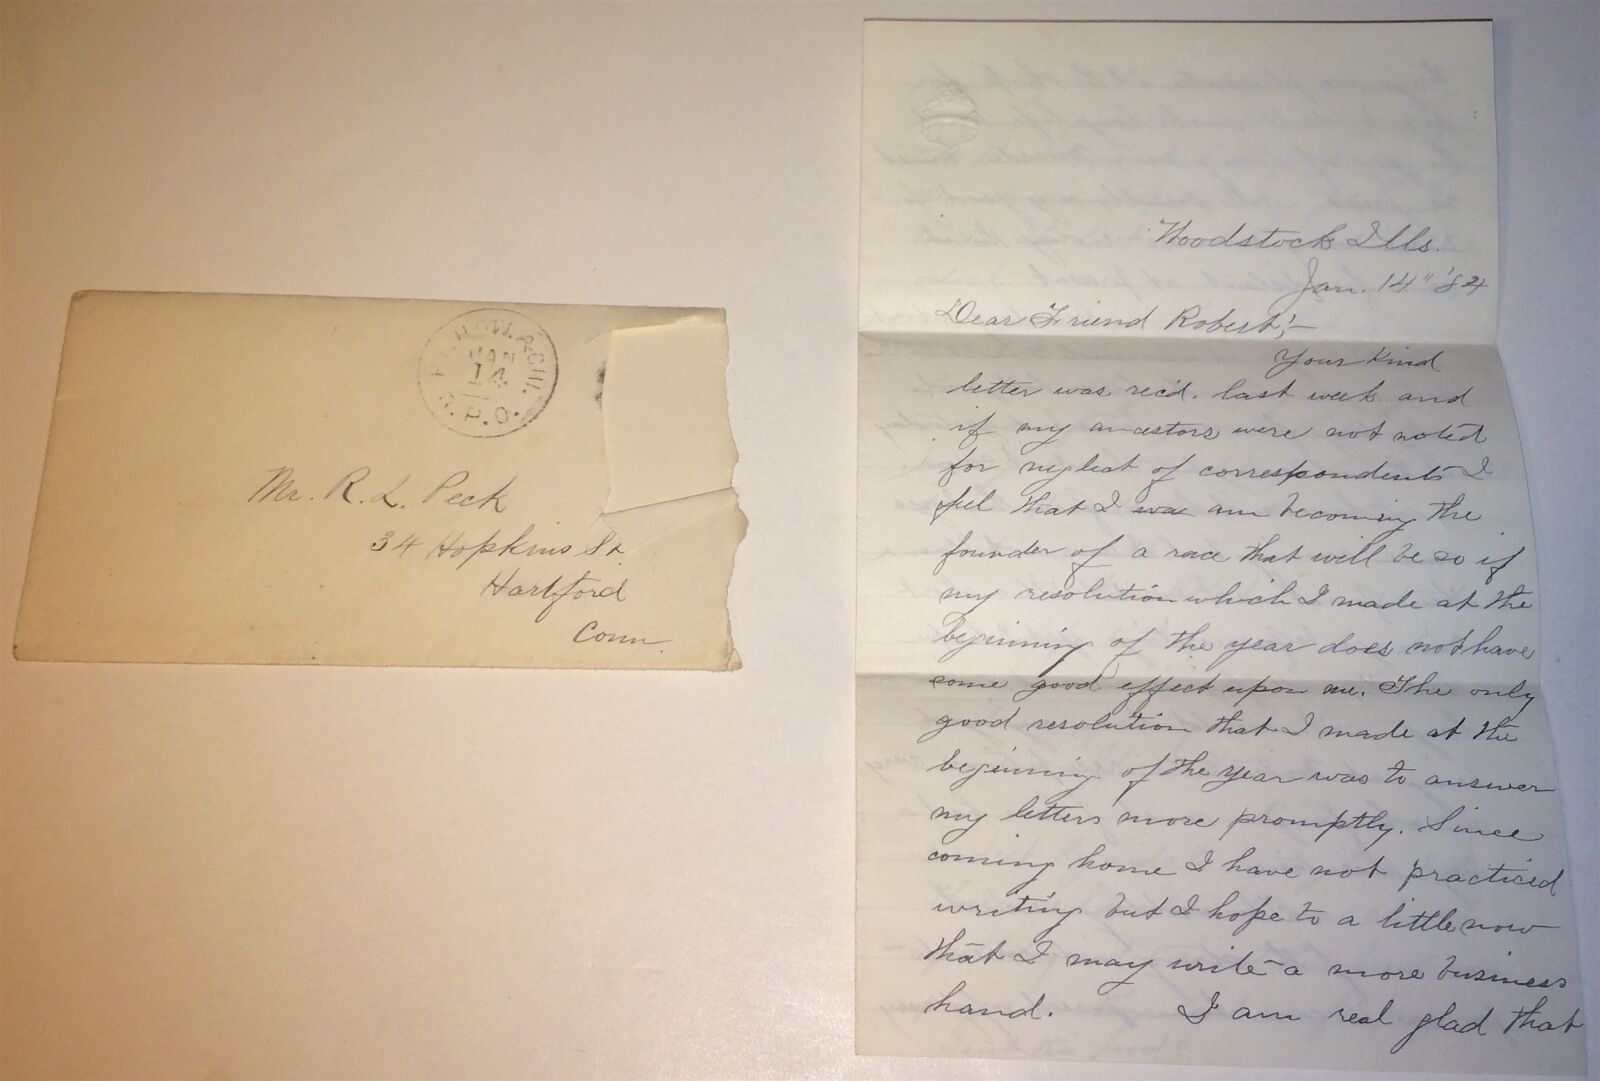 & CHI.
JAN
14
R.P.O.
Mr. R. L. Peck
34 Hopkins St.
Hartford
Conn.
Woodstock Ills.
Jan. 14" '84
Dear Friend Robert;—
Your kind
letter was rec'd. last week and
if my ancestors were not noted
for neglect of correspondents I
feel that I was am becoming the
founder of a race that will be so if
my resolution which I made at the
beginning of the year does not have
some good effect upon me. The only
good resolution that I made at the
beginning of the year was to answer
my letters more promptly. Since
coming home I have not practiced
writing but I hope to a little now
that I may write a more business
hand. I am real glad that